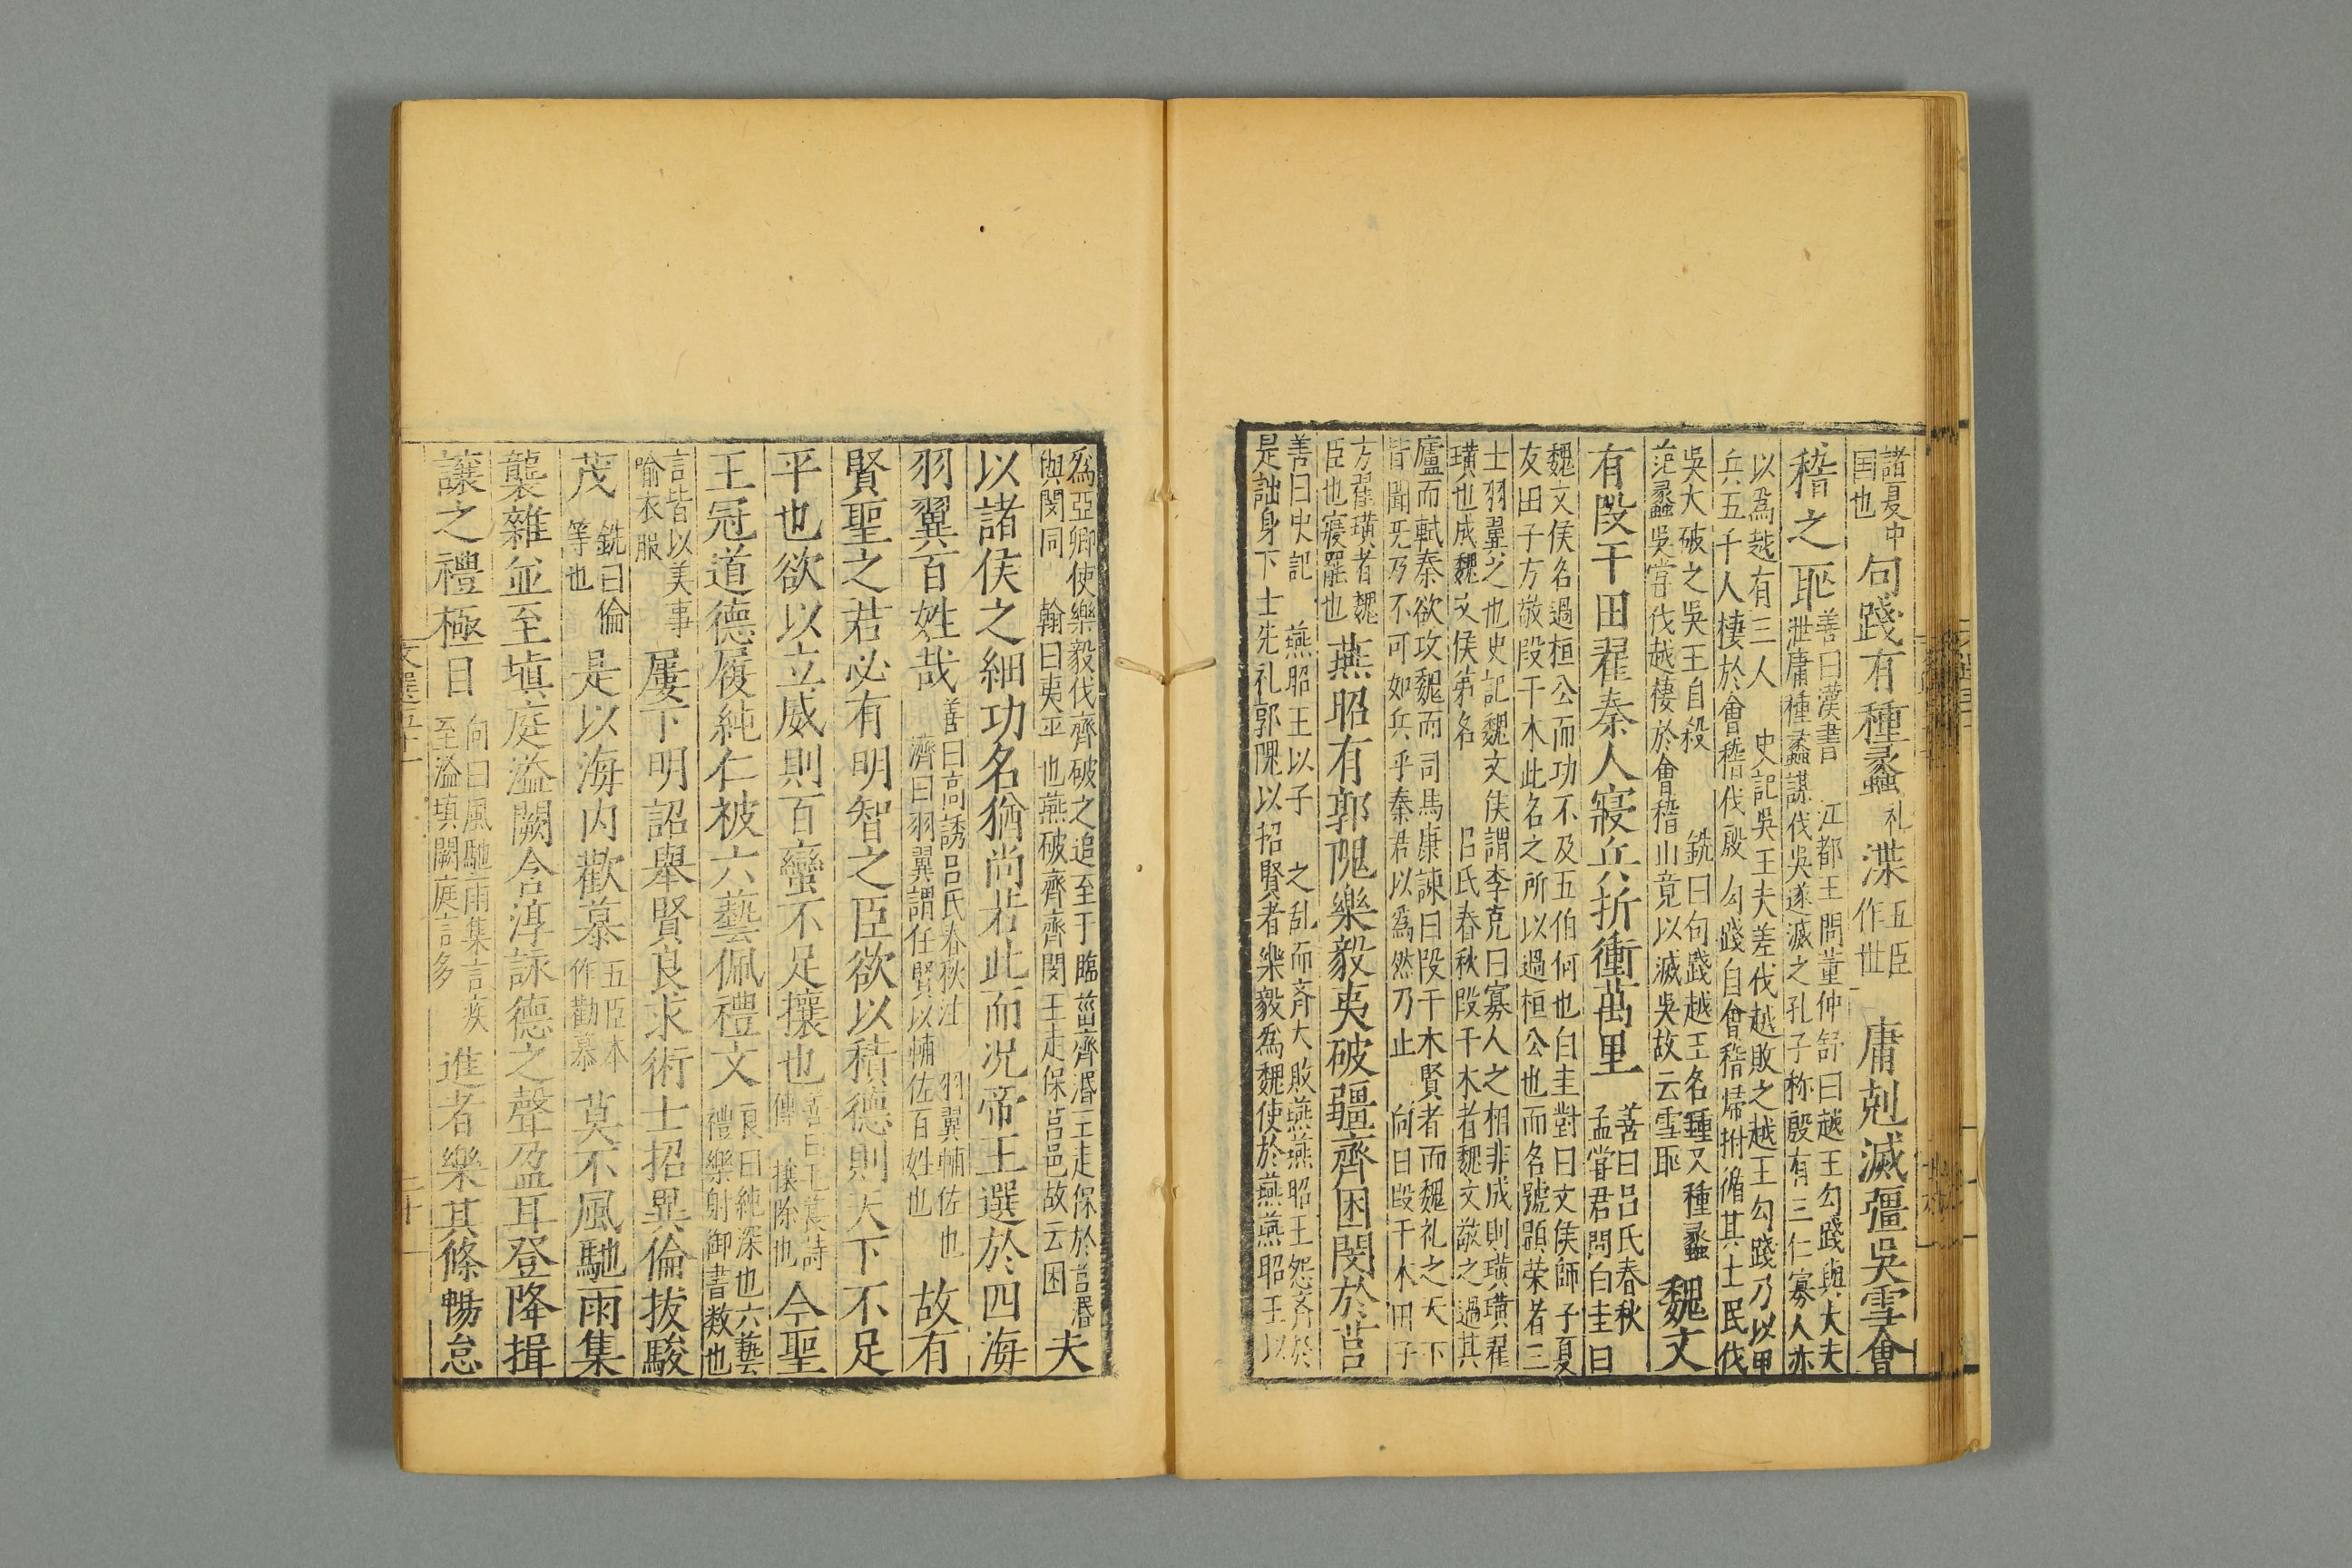 諸夏中
国也
句踐有種蠡
礼
渫
五臣
作世
庸剋滅彊吳雪會
稽之恥
善曰漢書 江都王問董仲舒曰越王勾踐與大夫
泄庸種蠡謀伐吳遂滅之孔子称殷有三仁寡人亦
以爲越有三人 史記吳王夫差伐越敗之越王勾踐乃以甲
兵五千人棲於會稽伐殷 勾踐自會稽歸拊循其士民伐
吳大破之吳王自殺 銑曰句踐越王名種又種蠡
范蠡吳嘗伐越棲於會稽山竟以滅吳故云雪恥
魏文
有段干田翟秦人寢兵折衝萬里
善曰呂氏春秋
孟嘗君問白圭曰
魏文侯名過桓公而功不及五伯何也白圭對曰文侯師子夏
友田子方敬段干木此名之所以過桓公也而名號顯荣者三
士羽翼之也史記魏文侯謂李克曰寡人之相非成則璜璜翟
璜也成魏文侯弟名 呂氏春秋段干木者魏文敬之過其
廬而軾秦欲攻魏而司馬康諫曰段干木賢者而魏礼之天下
皆聞无乃不可如兵乎秦君以爲然乃止 向曰段干木田子
方翟璜者魏
臣也寢罷也
燕昭有郭隗樂毅夷破彊齊困閔於莒
善曰史記 燕昭王以子 之乱而斉大敗燕燕昭王怨斉於
是詘身下士先礼郭隗以招賢者樂毅爲魏使於燕燕昭王以
爲亞卿使樂毅伐齊破之追至于臨菑齊湣王走保於莒湣
與閔同 翰曰夷平也燕破齊齊閔王走保莒邑故云困
夫
以諸侯之細功名猶尚若此而况帝王選於四海
羽翼百姓哉
善曰高誘呂氏春秋注 羽翼輔佐也
濟曰羽翼謂任賢以輔佐百姓也
故有
賢聖之君必有明智之臣欲以積德則天下不足
平也欲以立威則百蠻不足攘也
善曰毛萇詩
傳 攘除也
今聖
王冠道德履純仁被六藝佩禮文
良曰純深也六藝
禮樂射御書数也
言皆以美事
喻衣服
屢下明詔舉賢良求術士招異倫拔駿
茂
銑曰倫
等也
是以海內歡慕
五臣本
作勸慕
莫不風馳雨集
襲雜並至填庭溢闕含淳詠德之聲盈耳登降揖
讓之禮極目
向曰風馳雨集言疾
至溢填闕庭言多
進者樂其條暢怠
文選五十一
二十一